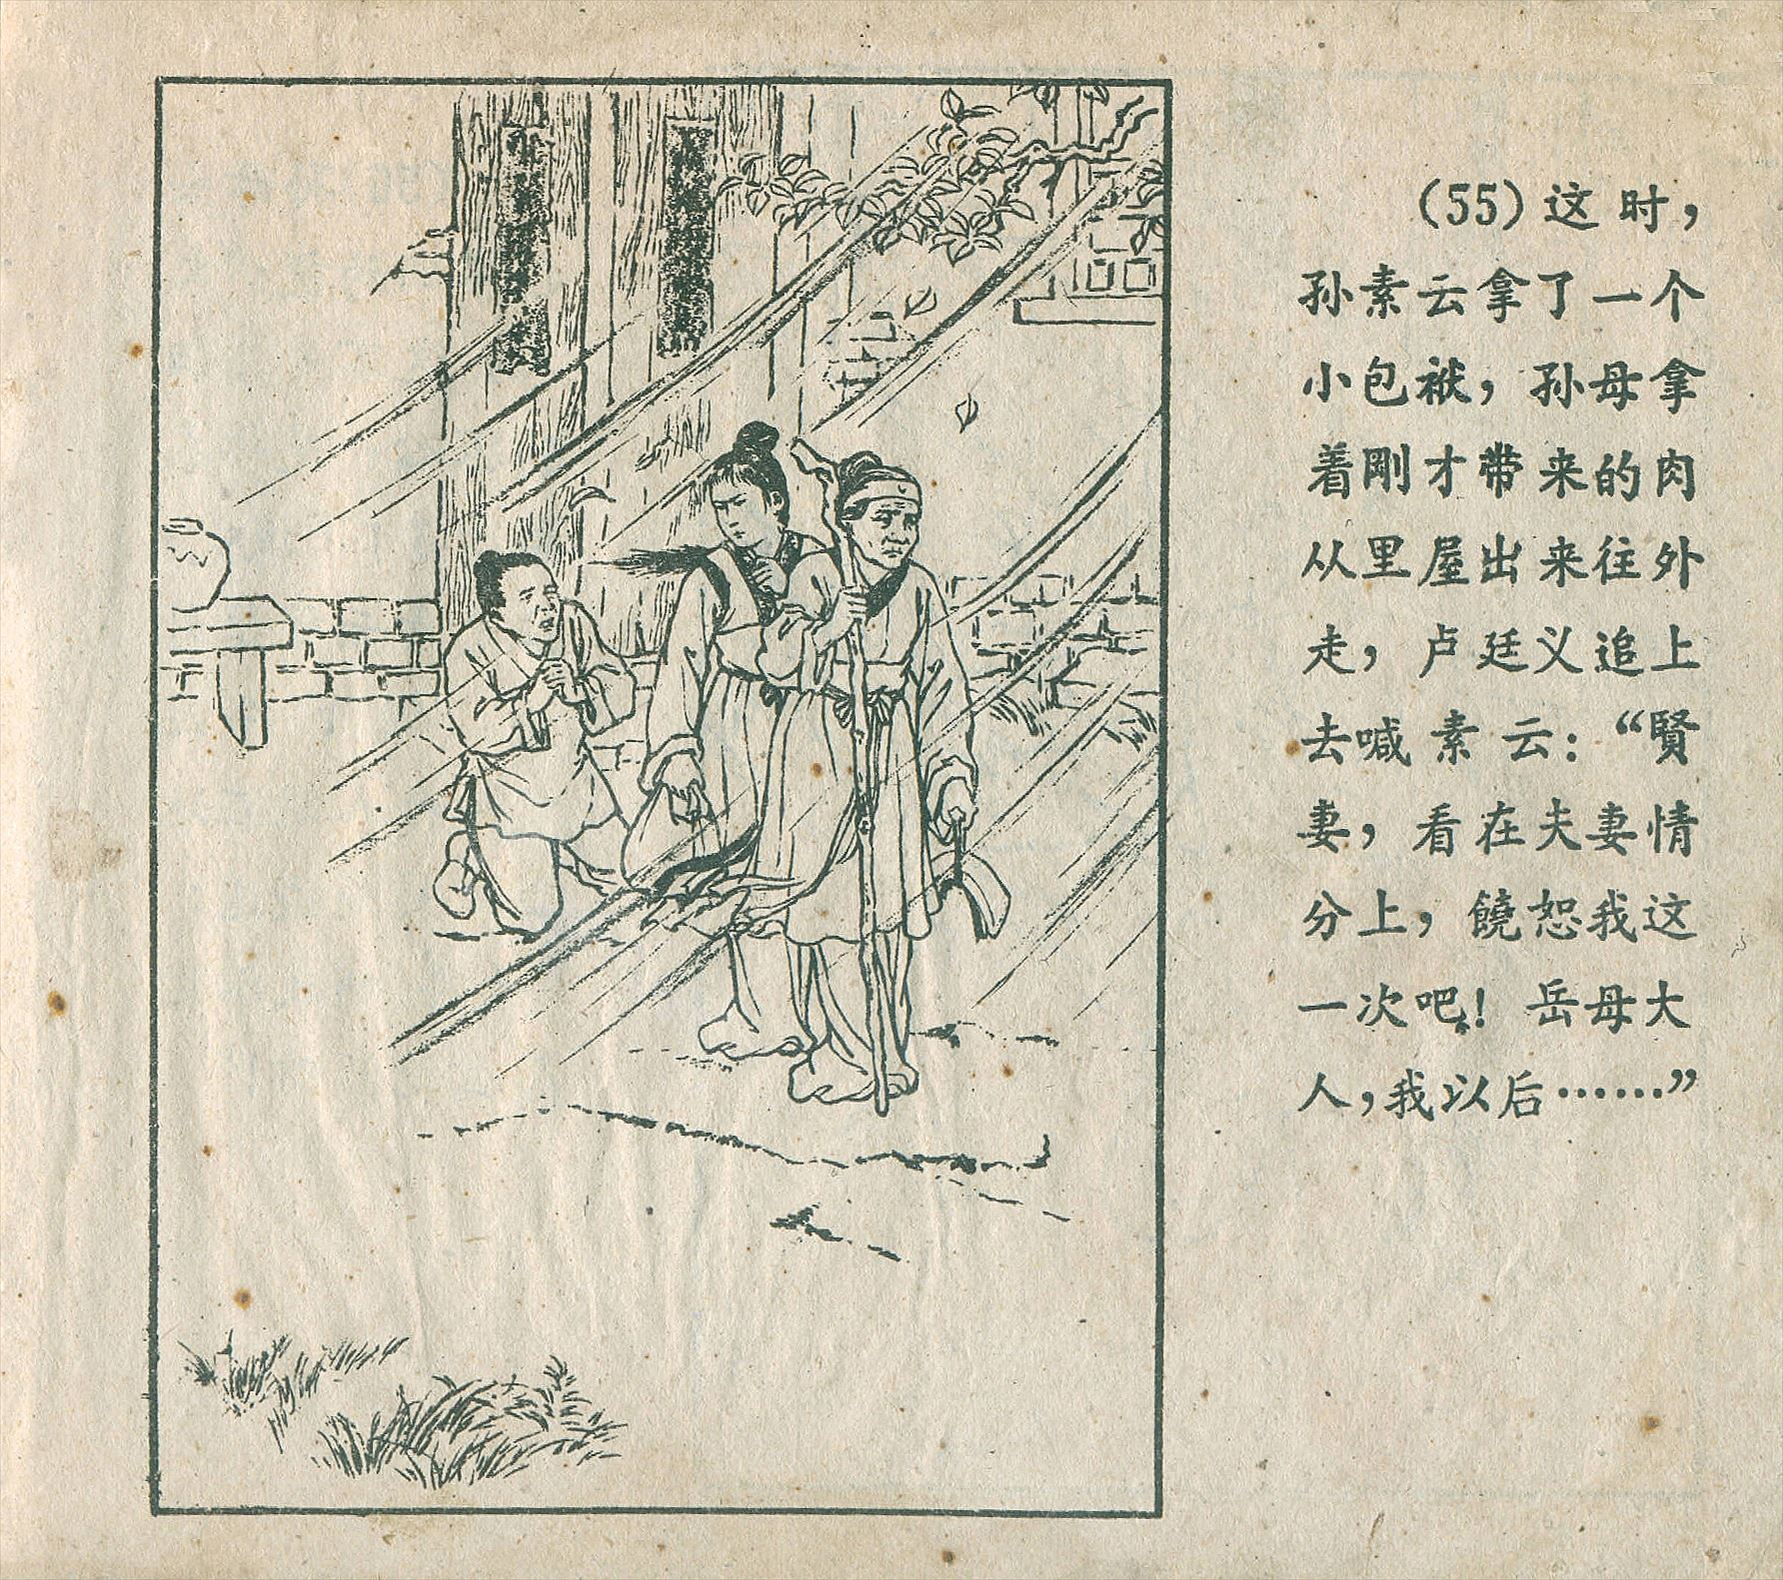 (55)这时，
孙素云拿了一个
小包袱，孙母拿
着刚才带来的肉
从里屋出来往外
走，卢廷义追上
去喊素云：“賢
妻，看在夫妻情
分上，饒恕我这
一次吧！岳母大
人，我以后……”